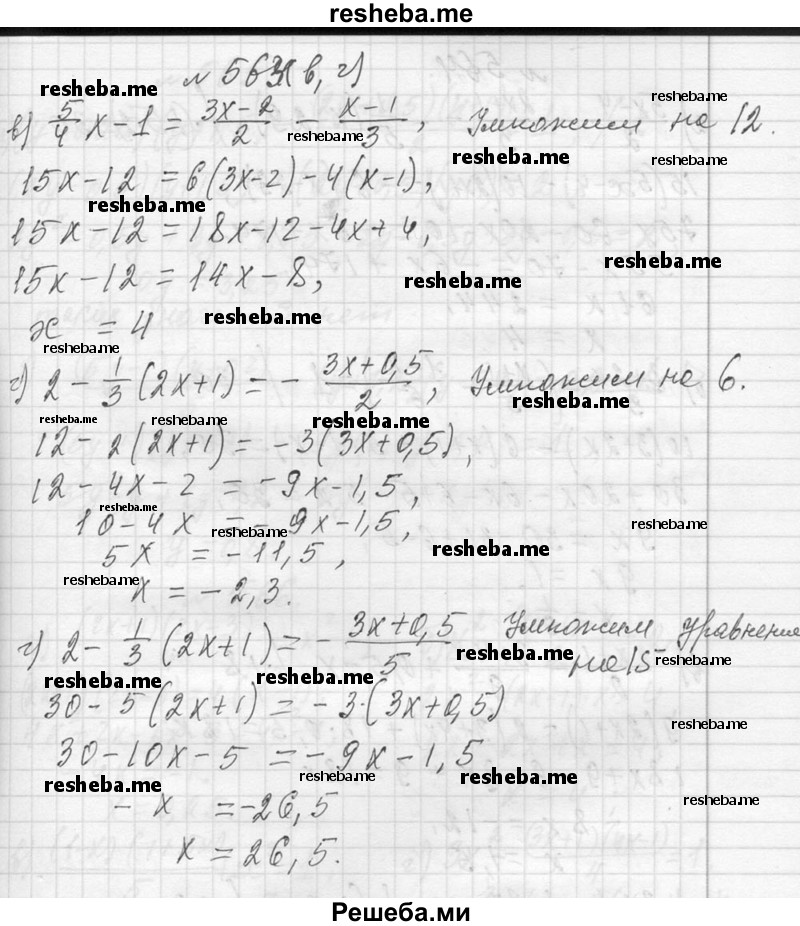 resheba.me
№ 563(в, г)
resheba.me resheba.me
в) 5/4 x - 1 = 3x-2/2 - x-1/3, Умножим на 12.
resheba.me resheba.me resheba.me
15x - 12 = 6(3x-2) - 4(x-1),
resheba.me
15x - 12 = 18x - 12 - 4x + 4,
resheba.me
15x - 12 = 14x - 8,
resheba.me
resheba.me
x = 4
resheba.me
г) 2 - 1/3 (2x+1) = - 3x+0,5/2, Умножим на 6.
resheba.me
resheba.me resheba.me resheba.me
12 - 2(2x+1) = -3(3x+0,5),
12 - 4x - 2 = -9x - 1,5,
resheba.me
10 - 4x = -9x - 1,5,
resheba.me resheba.me
5x = -11,5,
resheba.me
resheba.me
x = -2,3.
г) 2 - 1/3 (2x+1) = - 3x+0,5/5 Умножим уравнение
на 15
resheba.me resheba.me
resheba.me resheba.me
30 - 5(2x+1) = -3·(3x+0,5)
resheba.me
30 - 10x - 5 = -9x - 1,5
resheba.me resheba.me resheba.me
- x = -26,5
resheba.me
x = 26,5.
Решеба.ми